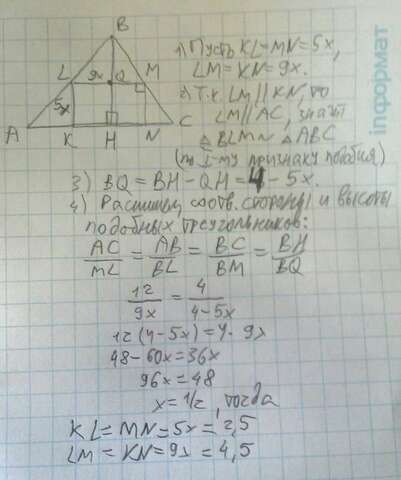 B
1) Пусть KL = MN = 5x,
LM = KN = 9x.
L 9x Q M
2) Т.к. LM || KN, то
LM || AC, значит
5x
A K H N C
△BLM ~ △ABC
(по I-му признаку подобия)
3) BQ = BH - QH = 4 - 5x.
4) Распишем соотв. стороны и высоты
подобных треугольников:
AC/ML = AB/BL = BC/BM = BH/BQ
12/9x = 4/4-5x
12(4-5x) = 4·9x
48-60x = 36x
96x = 48
x = 1/2, тогда
KL = MN = 5x = 2,5
LM = KN = 9x = 4,5
інформат